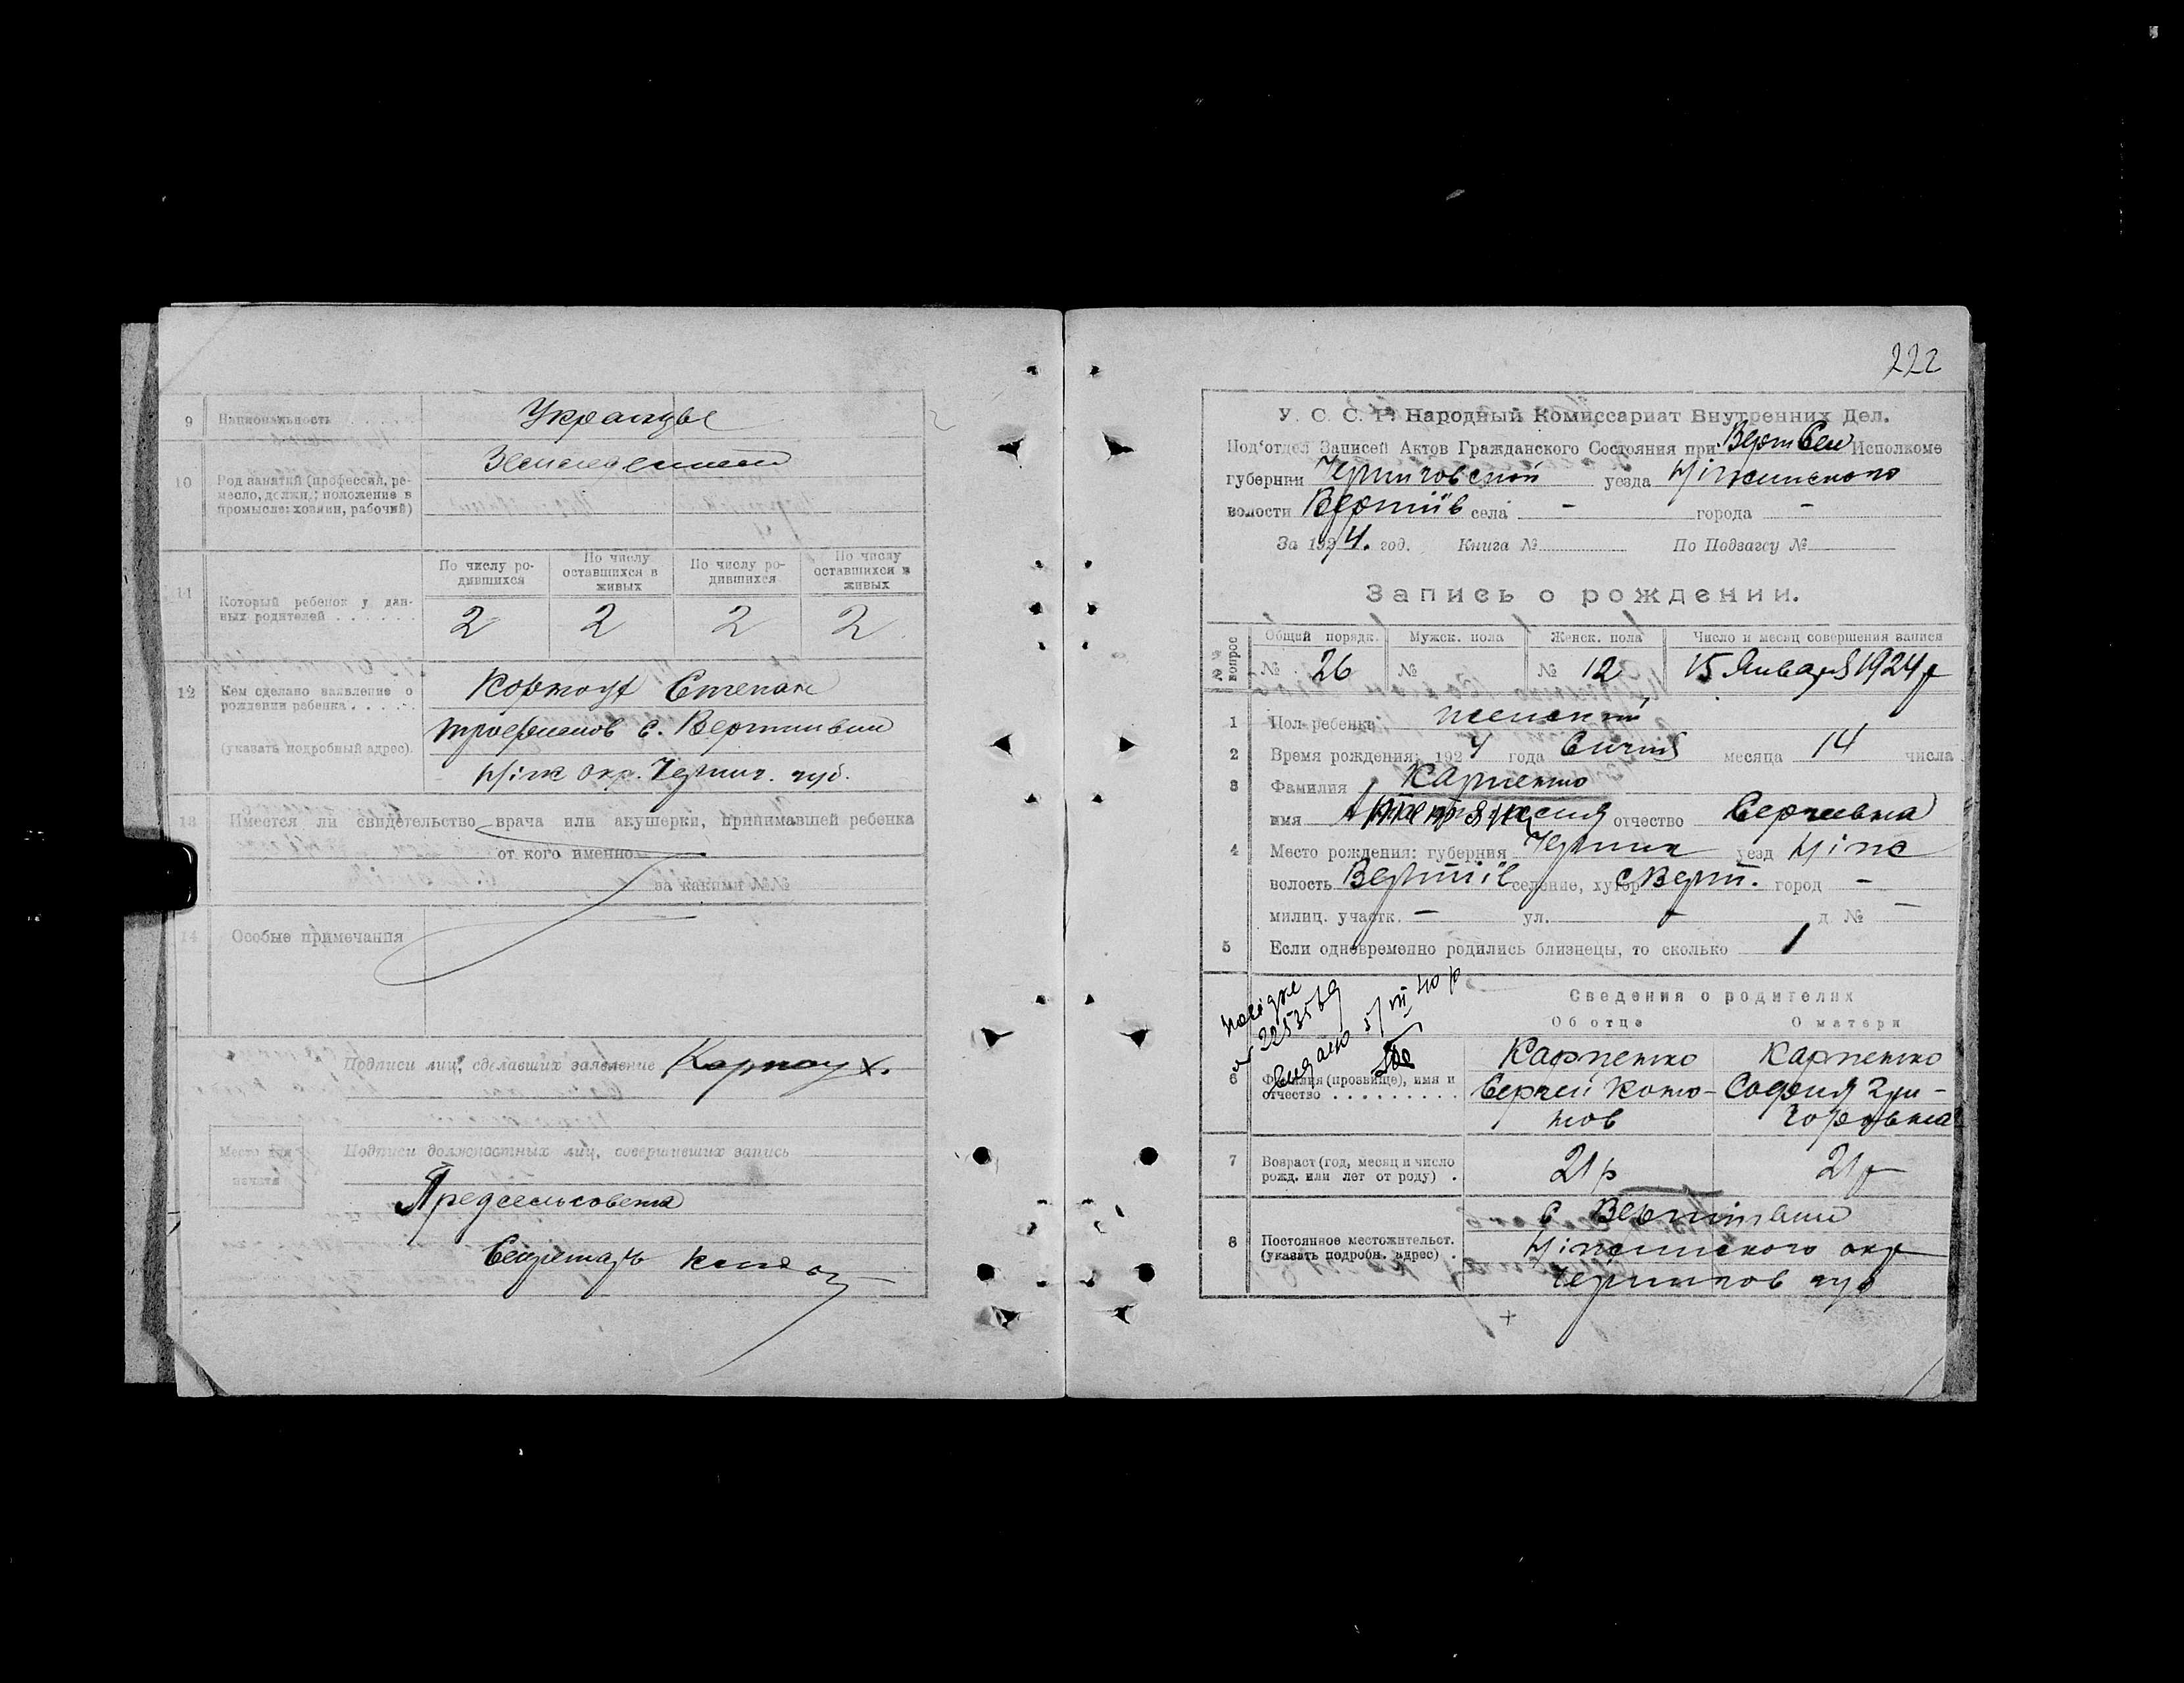 9 Национальность Украинцы
10 Род занятий (профессия, ре-
месло, должн.: положение в
промысле: хозяин, рабочий)
По числу ро-
дившихся
По числу
оставшихся в
живых
По числу ро-
дившихся
По числу
оставшихся в
живых
11 Который ребенок у дан-
ных родителей
2 2 2 2
12 Кем сделано заявление о
рождении ребенка
(указать подробный адрес).
Степан
с. Вертиивки
Ніж окр. Черниг. губ.
13 Имеется ли свидетельство врача или акушерки, принимавшей ребенка
от кого именно
за какими №№
14 Особые примечания
Подписи лиц, сделавших заявление Карноух.
Место для
печати
Подписи должностных лиц, совершивших запись
Предсельсовета
Секретарь
222
У. С. С. Р. Народный Комиссариат Внутренних Дел.
Под'отдел Записей Актов Гражданского Состояния при Верт Сел Исполкоме
губернии Черниговской уезда Ніжинского
волости Вертіїв села - города -
За 1924. год. Книга № По Подзагсу №
Запись о рождении.
№№ вопрос
Общий порядк. Мужск. пола Женск. пола Число и месяц совершения записи
№ 26 № № 12 15 Января 1924 г
1 Пол ребенка женский
2 Время рождения: 1924 года Січня месяца 14 числа
3 Фамилия Карпенко
имя отчество Сергиевна
4 Место рождения: губерния Черниг уезд Ніж
волость Вертіїв селение, хутор с Верт. город -
милиц. участк. - ул. - д. № -
5 Если одновременно родились близнецы, то сколько 1
видано 5/VII 40 р
Сведения о родителях
Об отце О матери
6 Фамилия (прозвище), имя и
отчество
Карпенко
Сергей Коно-
нов
Карпенко
София Гри-
горовьна
7 Возраст (год, месяц и число
рожд. или лет от роду)
21 р 21 р
8 Постоянное местожительст.
(указать подробн. адрес)
с Вертіївки
Ніжинского окр
Чернигов губ